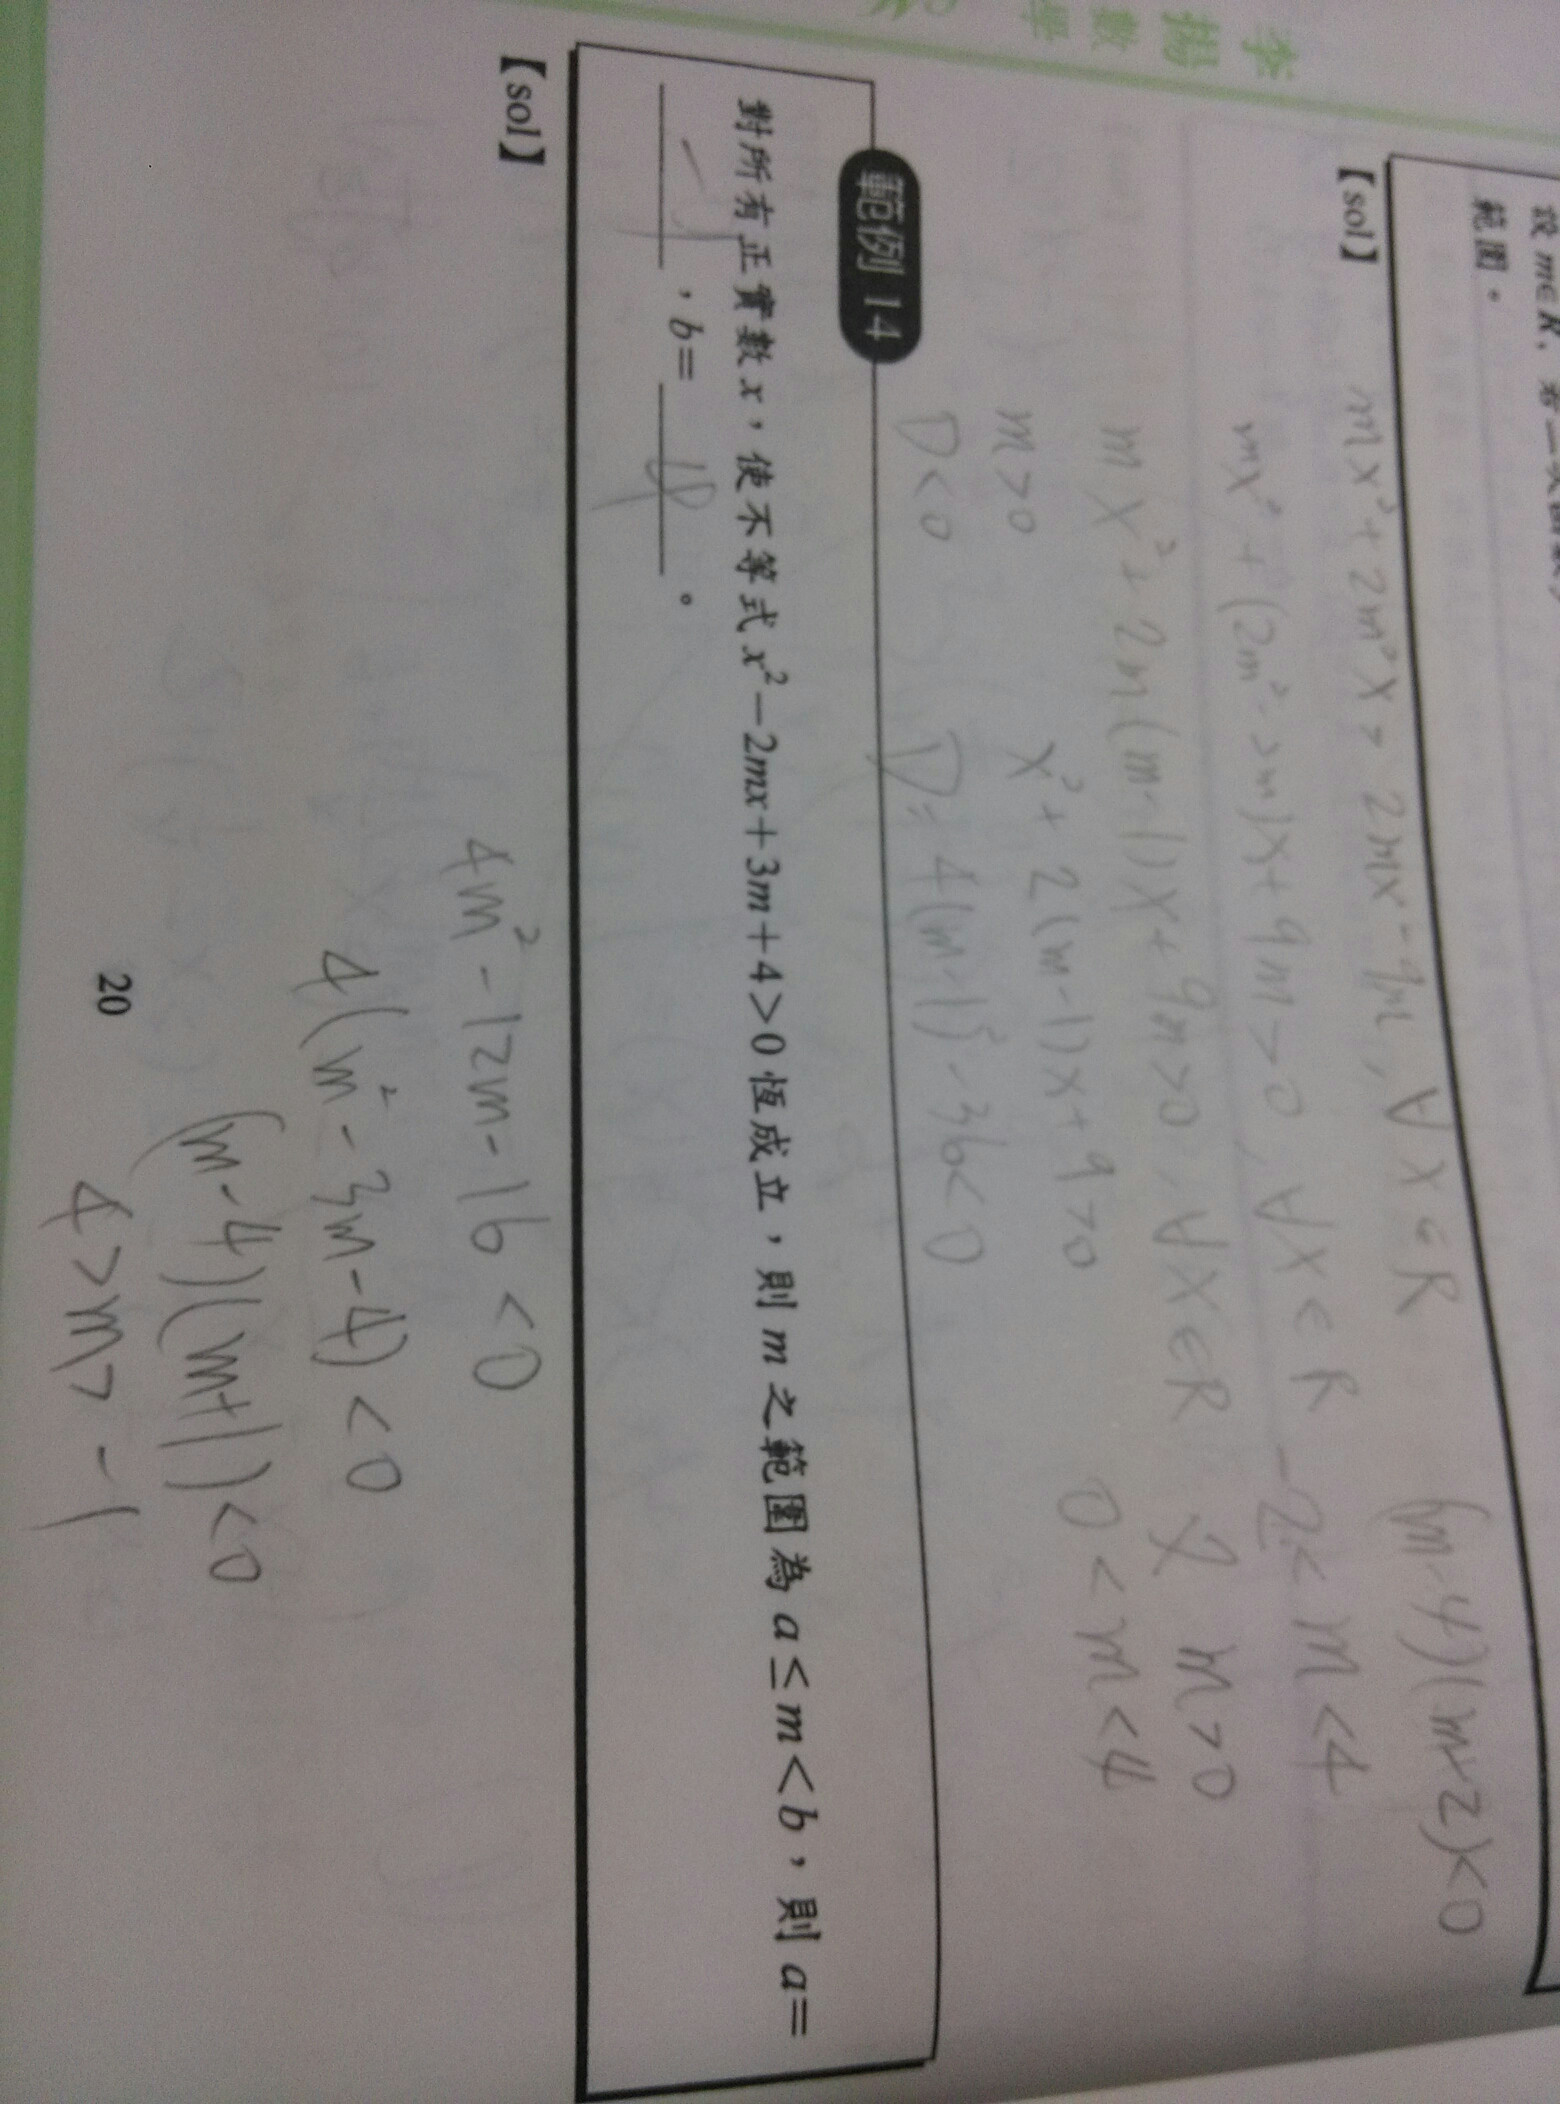 李揚
數學
設 m∈R,若二次函數
範圍。
【sol】
mx²+2m²x > 2mx-9m, ∀x∈R
mx²+(2m²-2m)x+9m>0, ∀x∈R
mx²+2m(m-1)x+9m>0, ∀x∈R
m>0
x²+2(m-1)x+9>0
D<0
D=4(m-1)²-36<0
(m-4)(m+2)<0
-2<m<4
又 m>0
0<m<4
範例 14
對所有正實數x,使不等式x²-2mx+3m+4>0恆成立,則m之範圍為a≤m<b,則a=
-1,b= 4。
【sol】
4m²-12m-16<0
4(m²-3m-4)<0
(m-4)(m+1)<0
4>m>-1
20